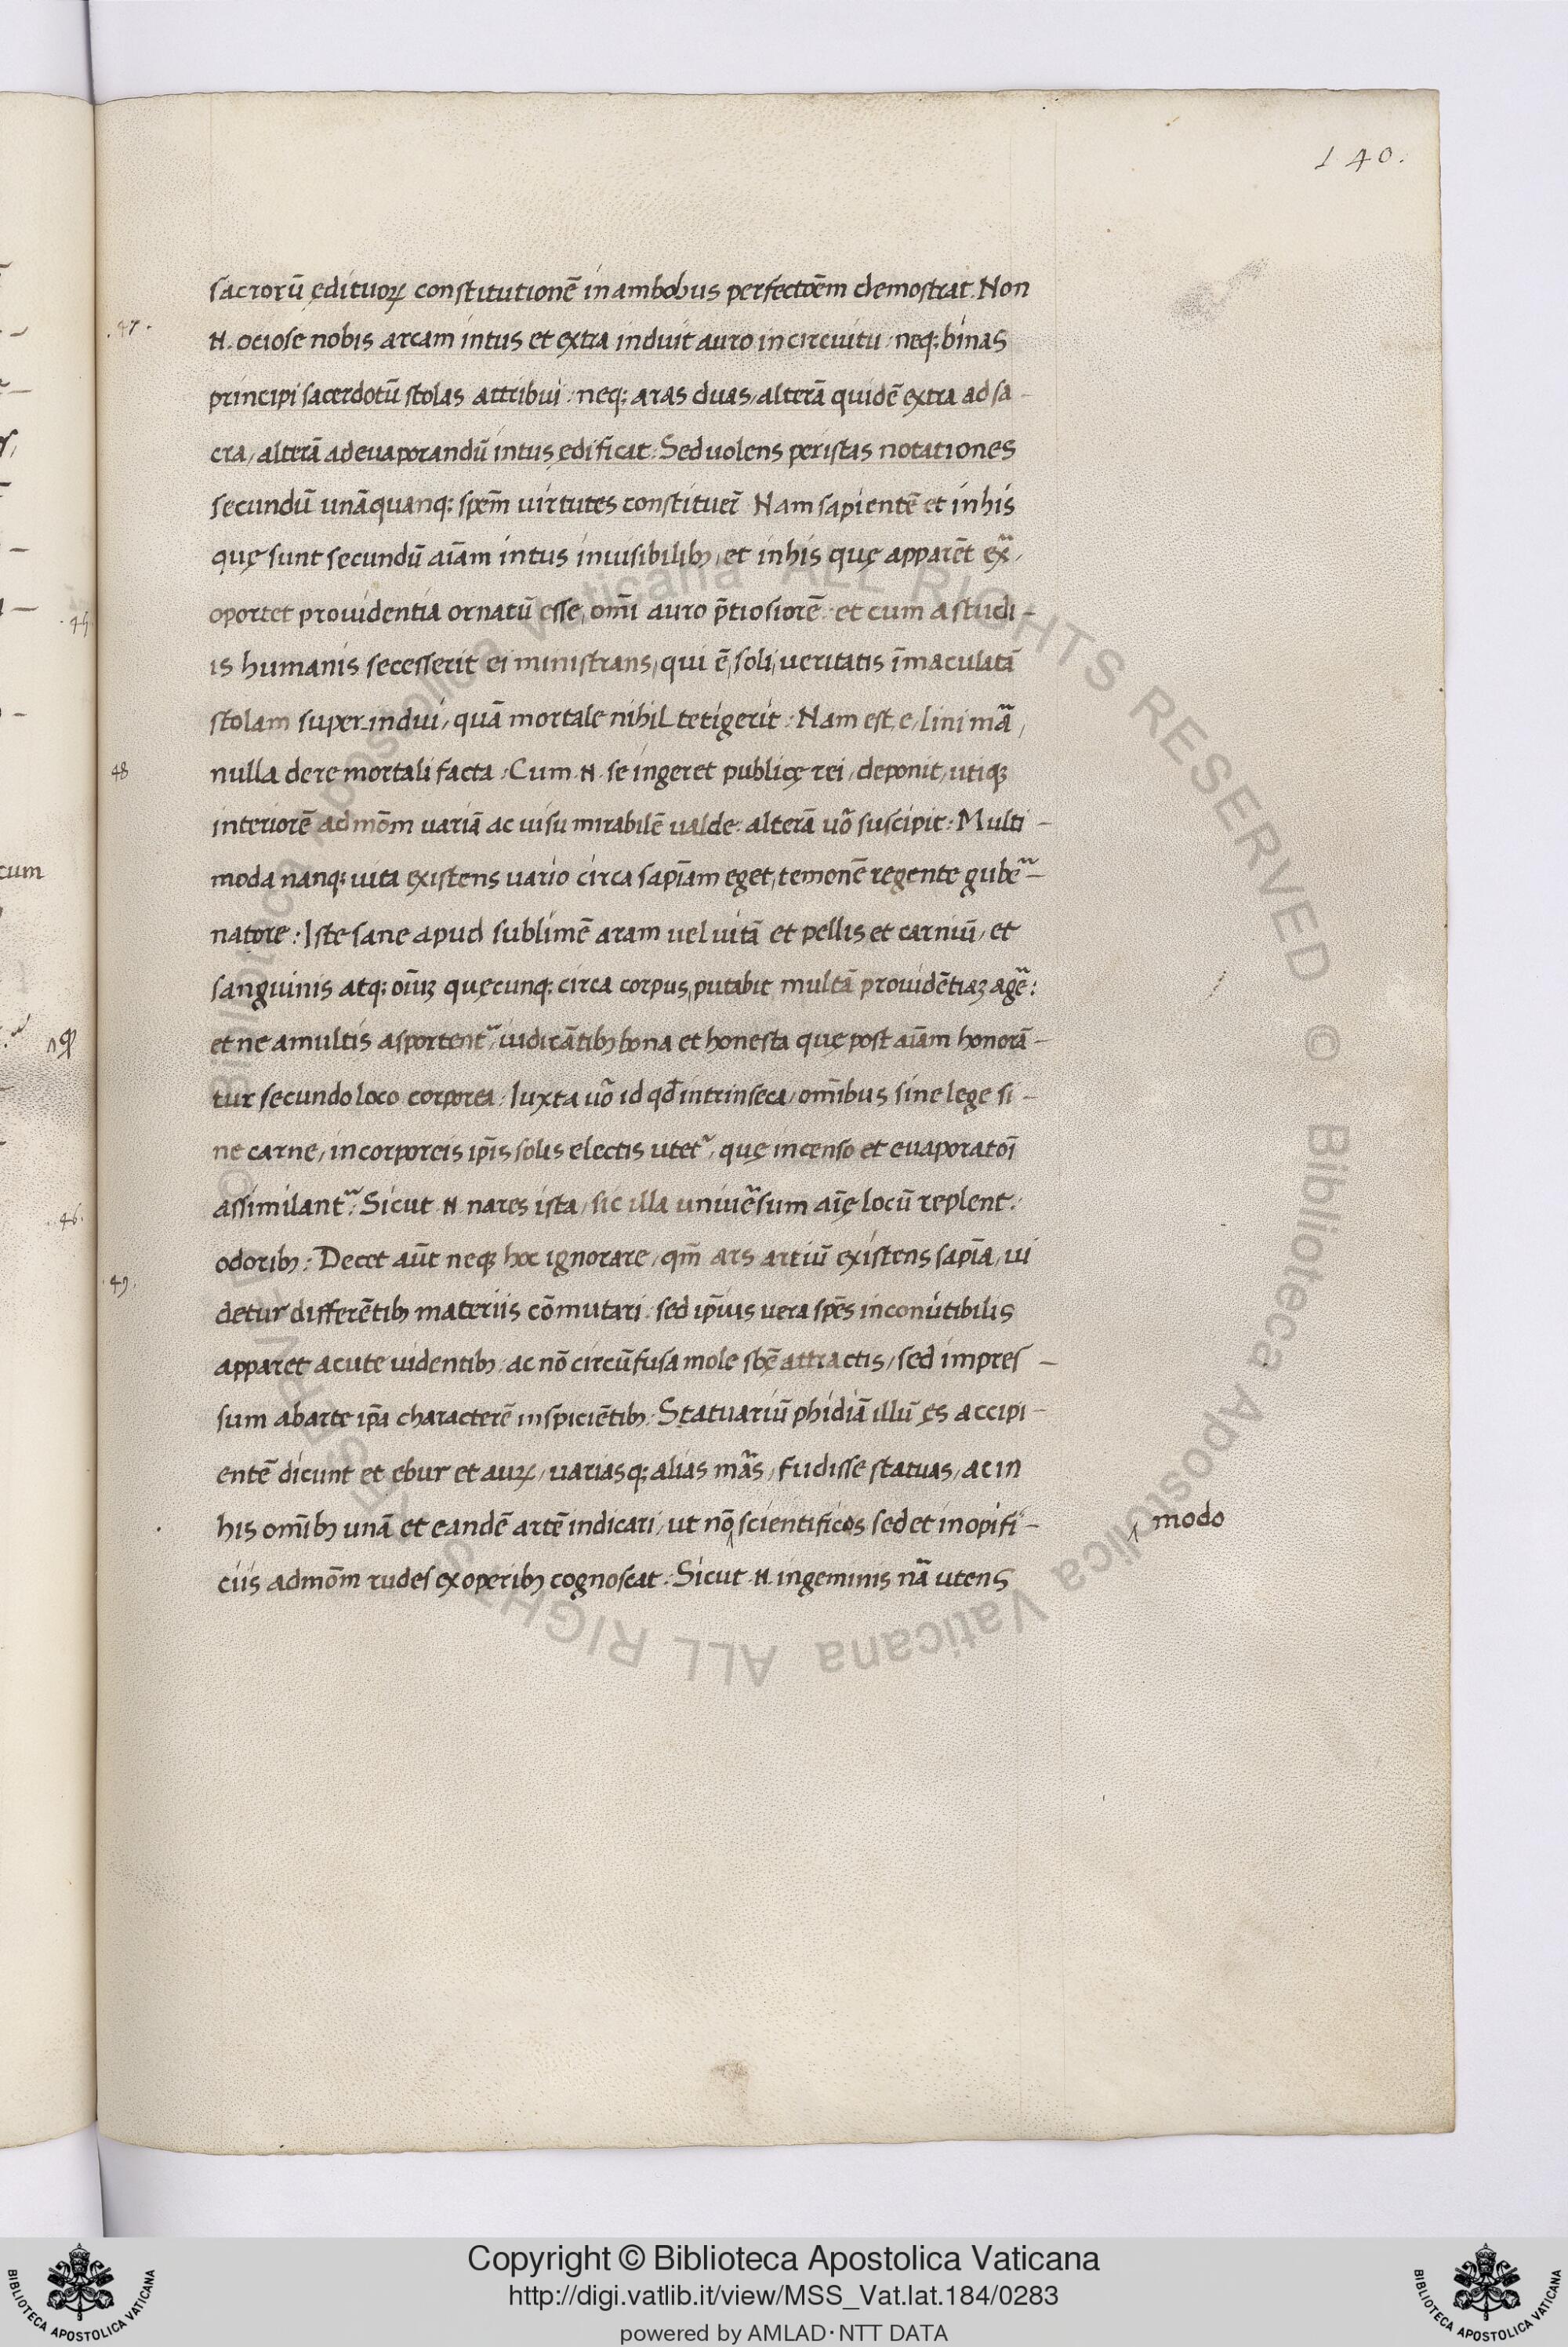 140.
sacrorū ędituoꝝ constitutionē in ambobus perfectōēm demostrat. Non
47.
.N. ociose nobis arcam intus et extra induit auro in circuitu: neq; binas
principi sacerdotū stolas attribui: neq; aras duas, alterā quidē extra ad sa-
cra, alterā ad euaporandū intus ędificat: Sed uolens per istas notationes
secundū unāquanq; spēm uirtutes constituer̄ Nam sapientē et in his
quę sunt secundū aīam intus inuisibilibꝫ, et in his quę apparēt ex̄,
oportet prouidentia ornatū esse, omī auro p̄tiosiorē: et cum a studi-
is humanis secesserit ei ministrans, qui ē, soli, ueritatis īmaculatā
stolam super-indui, quā mortale nihil tetigerit: Nam est, e, lini mā,
48
nulla de re mortali facta: Cum .N. se ingeret publicę rei, deponit, utiqꝫ
interiorē admōm uariā ac uisu mirabilē ualde: alterā uō suscipit: Multi-
moda nanq; uita existens uario circa sapīam eget, temonē regente gubē-
natore: Iste sane apud sublimē aram uel uitā et pellis et carniū, et
sanguinis atq; oīuꝫ quęcunq; circa corpus, putabit multā prouidētiaꝫ agē:
et ne a multis asportent᷑, iudicātibꝫ bona et honesta quę post aīam honorā-
tur secundo loco corporea: Iuxta uō id qd̄ intrinseca, omībus sine lege si-
ne carne, incorporeis ip̄is solis electis utet᷑, quę incenso et euaporatōī
assimilant᷑: Sicut .N. nares ista, sic illa uniuēsum aīę locū replent:
odoribꝫ: Decet aūt neqꝫ hoc ignorare, qm̄ ars artiū existens sapīa, ui
49.
detur differētibꝫ materiis cōmutari: sed ip̄ius uera spēs inconūtibilis
apparet acute uidentibꝫ: ac nō circūfusa mole sbę̄ attractis, sed impres-
sum ab arte ip̄a characterē inspiciētibꝫ: Statuariū phidiā illū ęs accipi-
entē dicunt et ebur et auꝝ, uariasq; alias mās, fudisse statuas, ac in
his omībꝫ unā et eandē artē indicari, ut nō scientificos sed et in opifi-
modo
ciis admōm rudes ex operibꝫ cognoscat: Sicut .N. in geminis nā utens
45
cum
46.
Copyright © Biblioteca Apostolica Vaticana
http://digi.vatlib.it/view/MSS_Vat.lat.184/0283
powered by AMLAD·NTT DATA
BIBLIOTECA APOSTOLICA VATICANA
BIBLIOTECA APOSTOLICA VATICANA